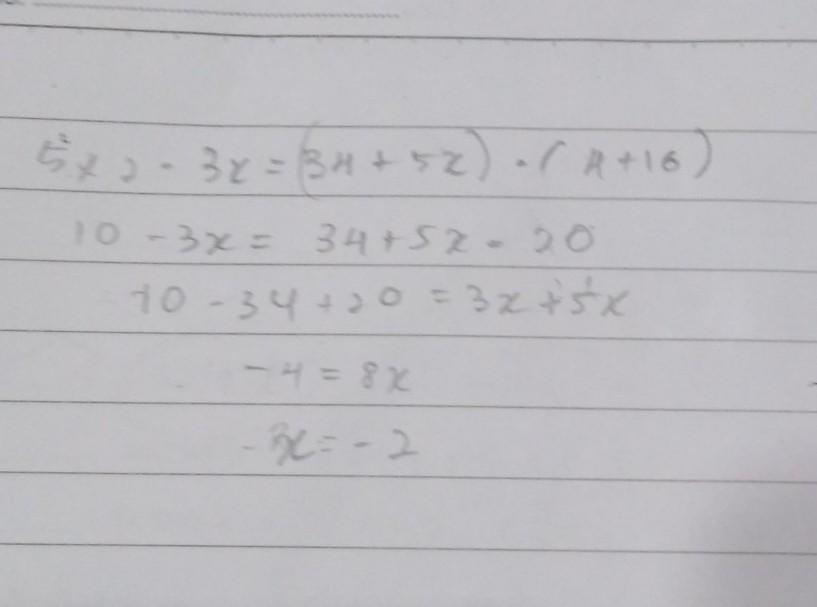 5 × 2 - 3x = (34 + 5x) - (4+16)
10 - 3x = 34 + 5x - 20
10 - 34 + 20 = 3x + 5x
-4 = 8x
x = -2